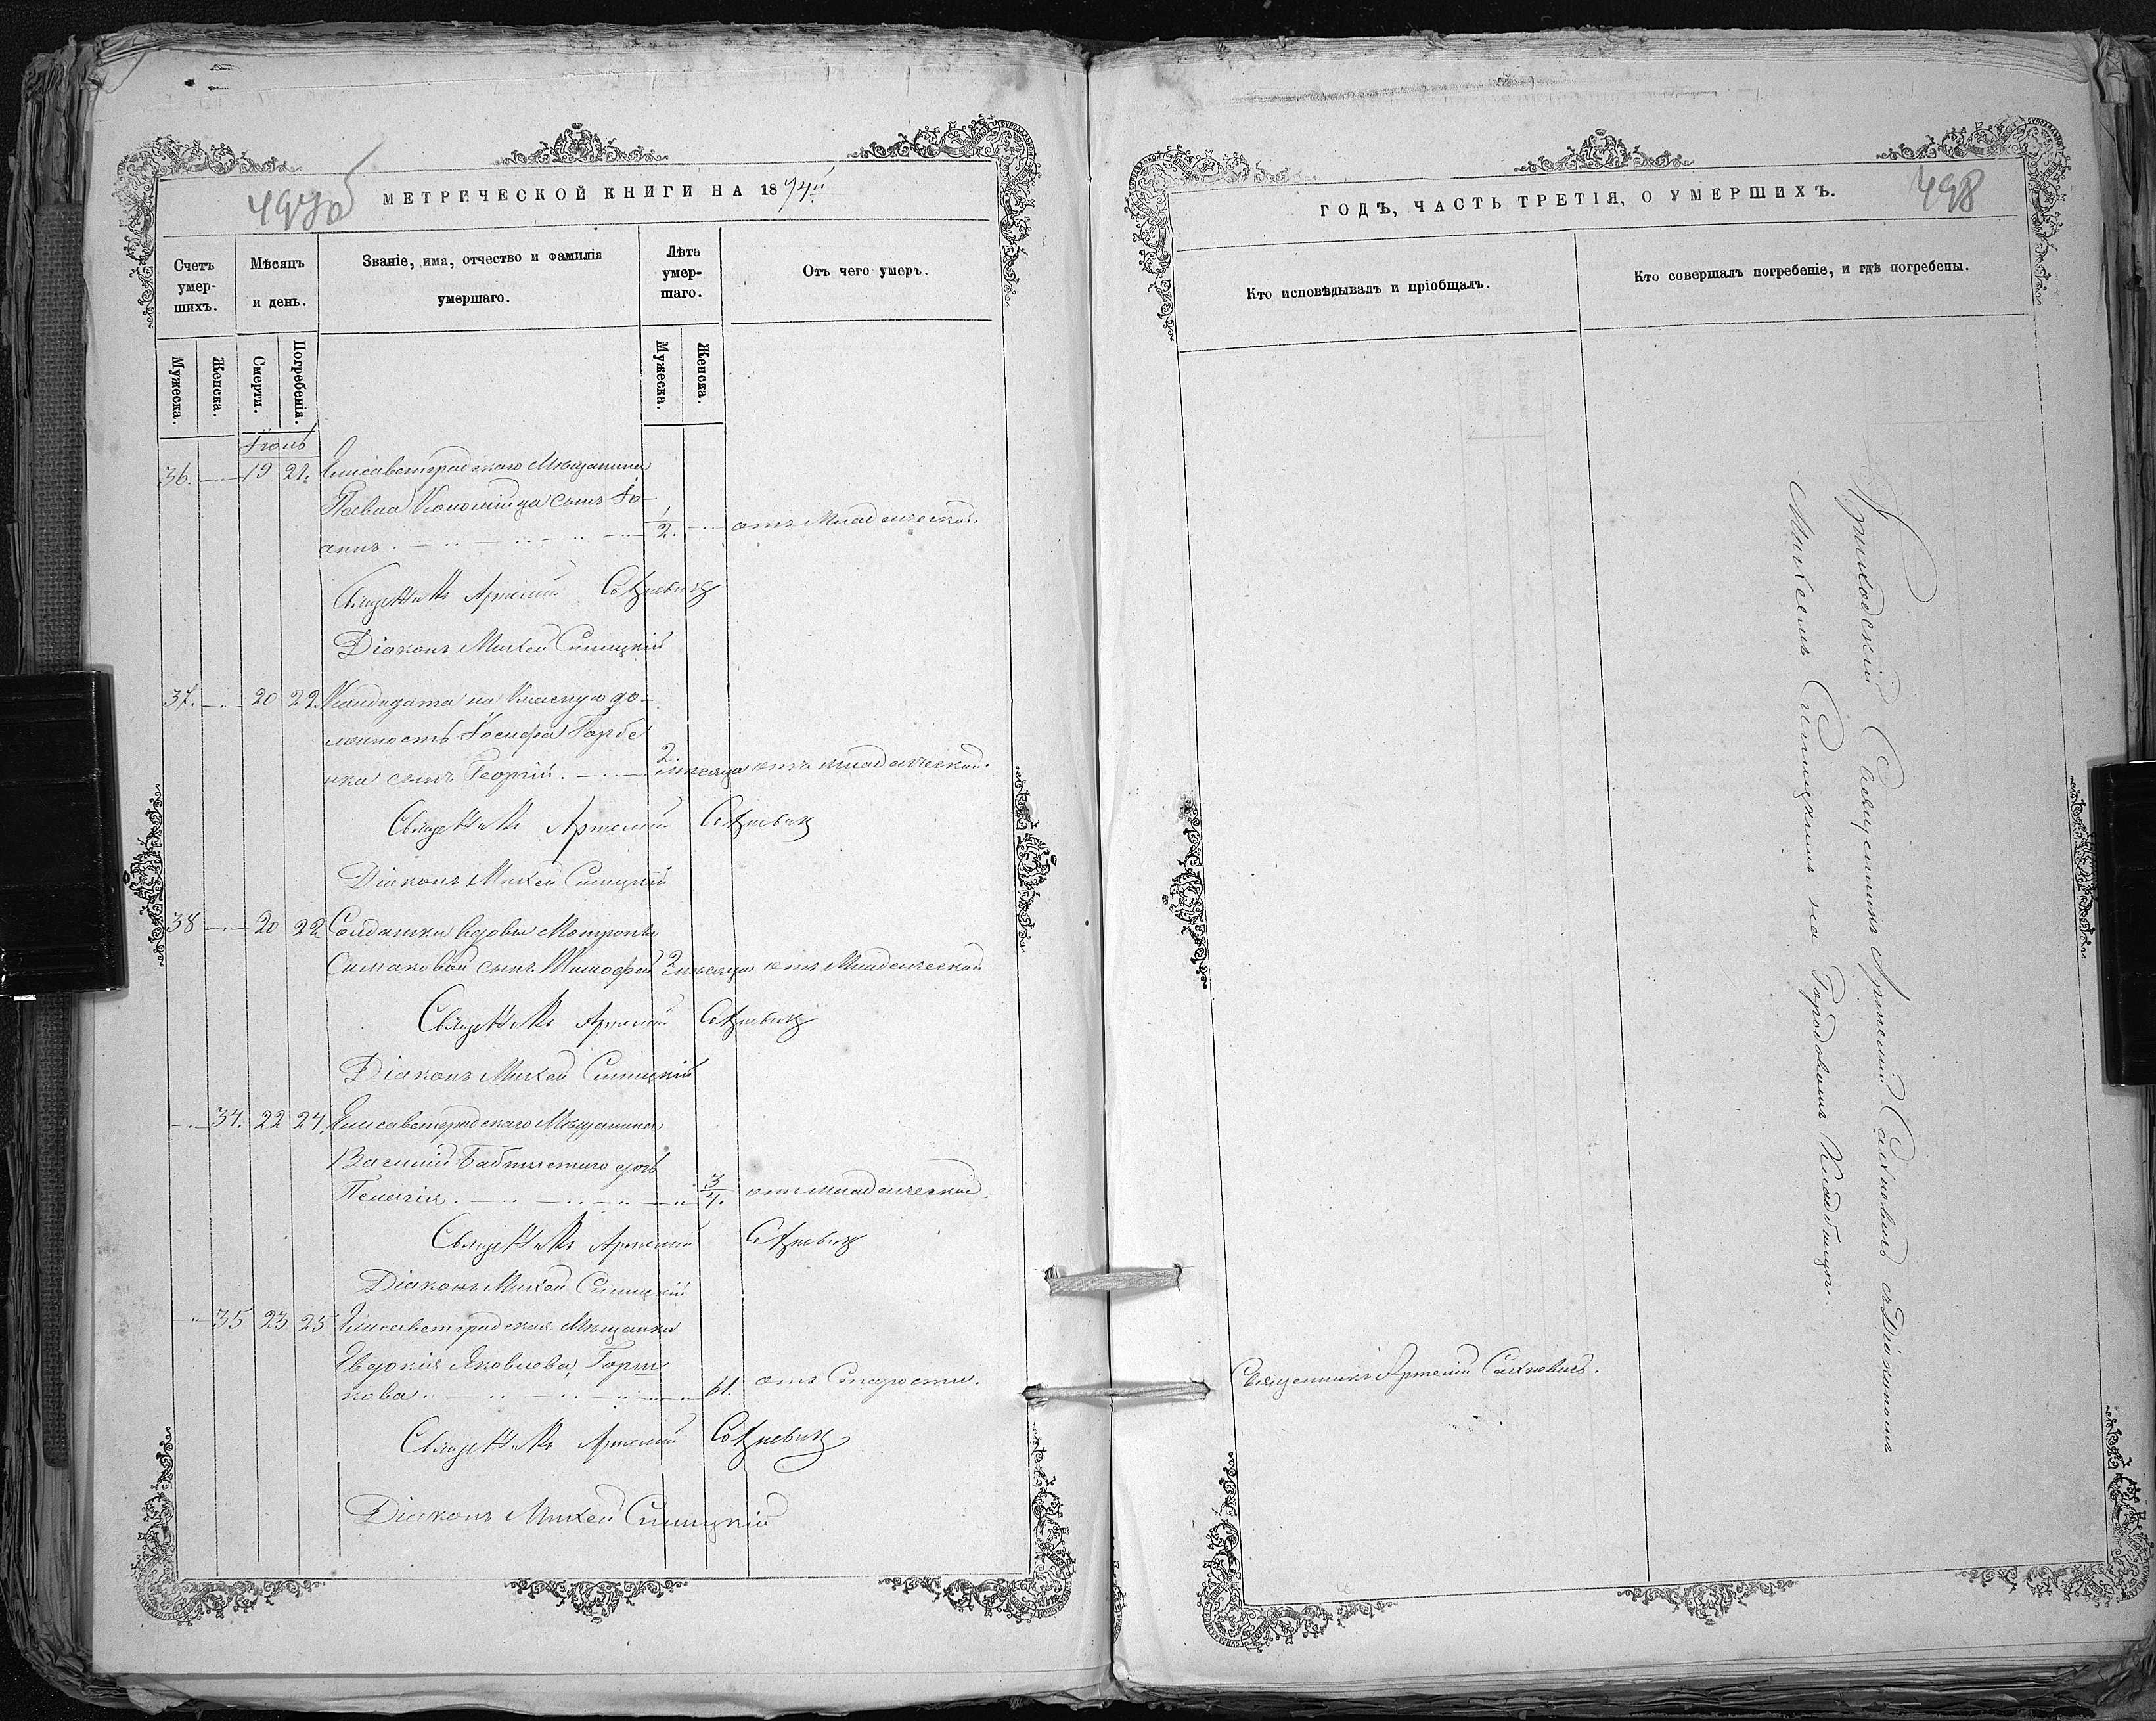 497об
МЕТРИЧЕСКОЙ КНИГИ НА 1874й
Счетъ умер-шихъ.
Мѣсяцъ и день.
Званіе, имя, отчество и фамилія умершаго.
Лѣта умер-шаго.
Отъ чего умеръ.
Мужеска.
Женска.
Смерти.
Погребенія.
Мужеска.
Женска.
36. 19 21. Елисаветградскаго Мѣщанина
сынъ Іо-
аннъ. 1/2. отъ Младенческой.
Священникъ Артемій Сахневичъ
Діаконъ Михей Синицкій
37. 20 22. Кандидата на Класную до-
лжность Іосифа Горбе
нка сынъ Георгій. 2. мѣсяца отъ младенческой.
Священникъ Артемій Сахневичъ
Діаконъ Михей Синицкій
38 20 22 Солдатки вдовы Матроны
Симаковой сынъ Тимофей 2 мѣсяца отъ Младенческой
Священникъ Артемій Сахневичъ
Діаконъ Михей Синицкій
34. 22 24. Елисаветградскаго Мѣщанина
Василія дочь
Пелагія. 3/4. отъ младенческой.
Священникъ Артемій Сахневичъ
Діаконъ Михей Синицкій
35 23 25 Елисаветградская Мѣщанка
Евдокія Яковлева Горш
кова. 61. отъ Старости.
Священникъ Артемій Сахневичъ
Діаконъ Михей Синицкій
498
ГОДЪ, ЧАСТЬ ТРЕТІЯ, О УМЕРШИХЪ.
Кто исповѣдывалъ и пріобщалъ.
Кто совершалъ погребеніе, и гдѣ погребены.
Приходскій Священникъ Артемій Сахновичъ съ Діакономъ
Михеемъ Синицкимъ на Городовомъ Кладбищѣ.
Священникъ Артемій Сахневичъ.